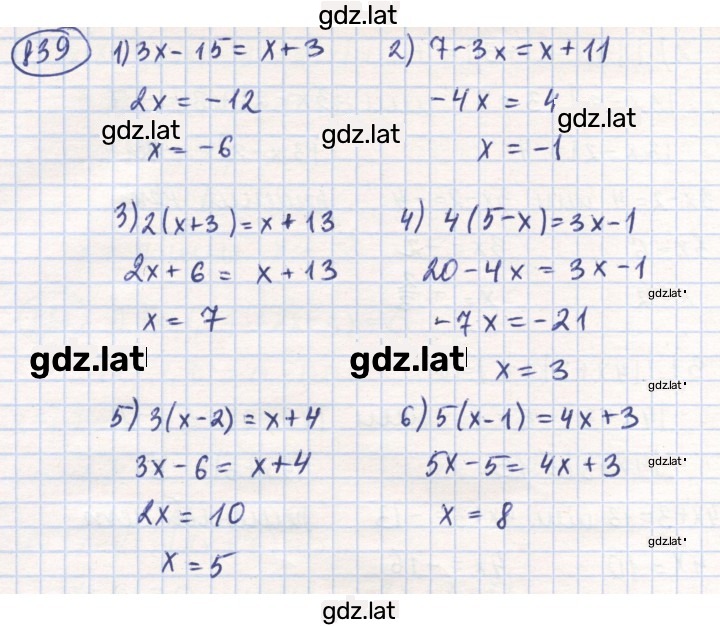 gdz.lat
839 1) 3x - 15 = x + 3 2) 7 - 3x = x + 11
2x = -12 -4x = 4
gdz.lat gdz.lat gdz.lat
x = -6 x = -1
3) 2(x+3) = x + 13 4) 4(5-x) = 3x - 1
2x + 6 = x + 13 20 - 4x = 3x - 1
gdz.lat
x = 7 -7x = -21
gdz.lat gdz.lat x = 3
gdz.lat
5) 3(x-2) = x + 4 6) 5(x-1) = 4x + 3
3x - 6 = x + 4 5x - 5 = 4x + 3
gdz.lat
2x = 10 x = 8
gdz.lat
x = 5
gdz.lat